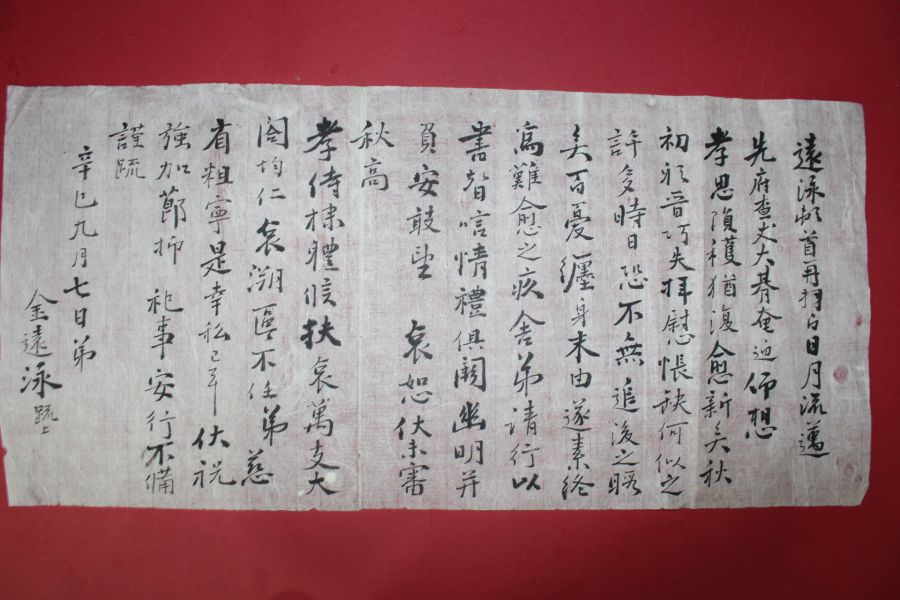 遠泳頓首再拜白日月流邁
先府查丈大朞奄迫仰想
孝思隕穫猶復愈新矣秋
初邪晋巧失拜慰悵缺何似之
許多時日恐不無追後之暇
矣百憂纏身末由遂素終
難愈之疾舍弟請行以
書替唁情禮俱闕幽明并
負安敢望 哀恕伏未審
秋高
孝侍棣體候扶哀萬支大
閤均仁哀溯區區不任弟慈
省粗寧是幸私已耳 伏祝
強加節抑 祀事安行不備
謹疏
辛巳九月七日弟
金遠泳疏上